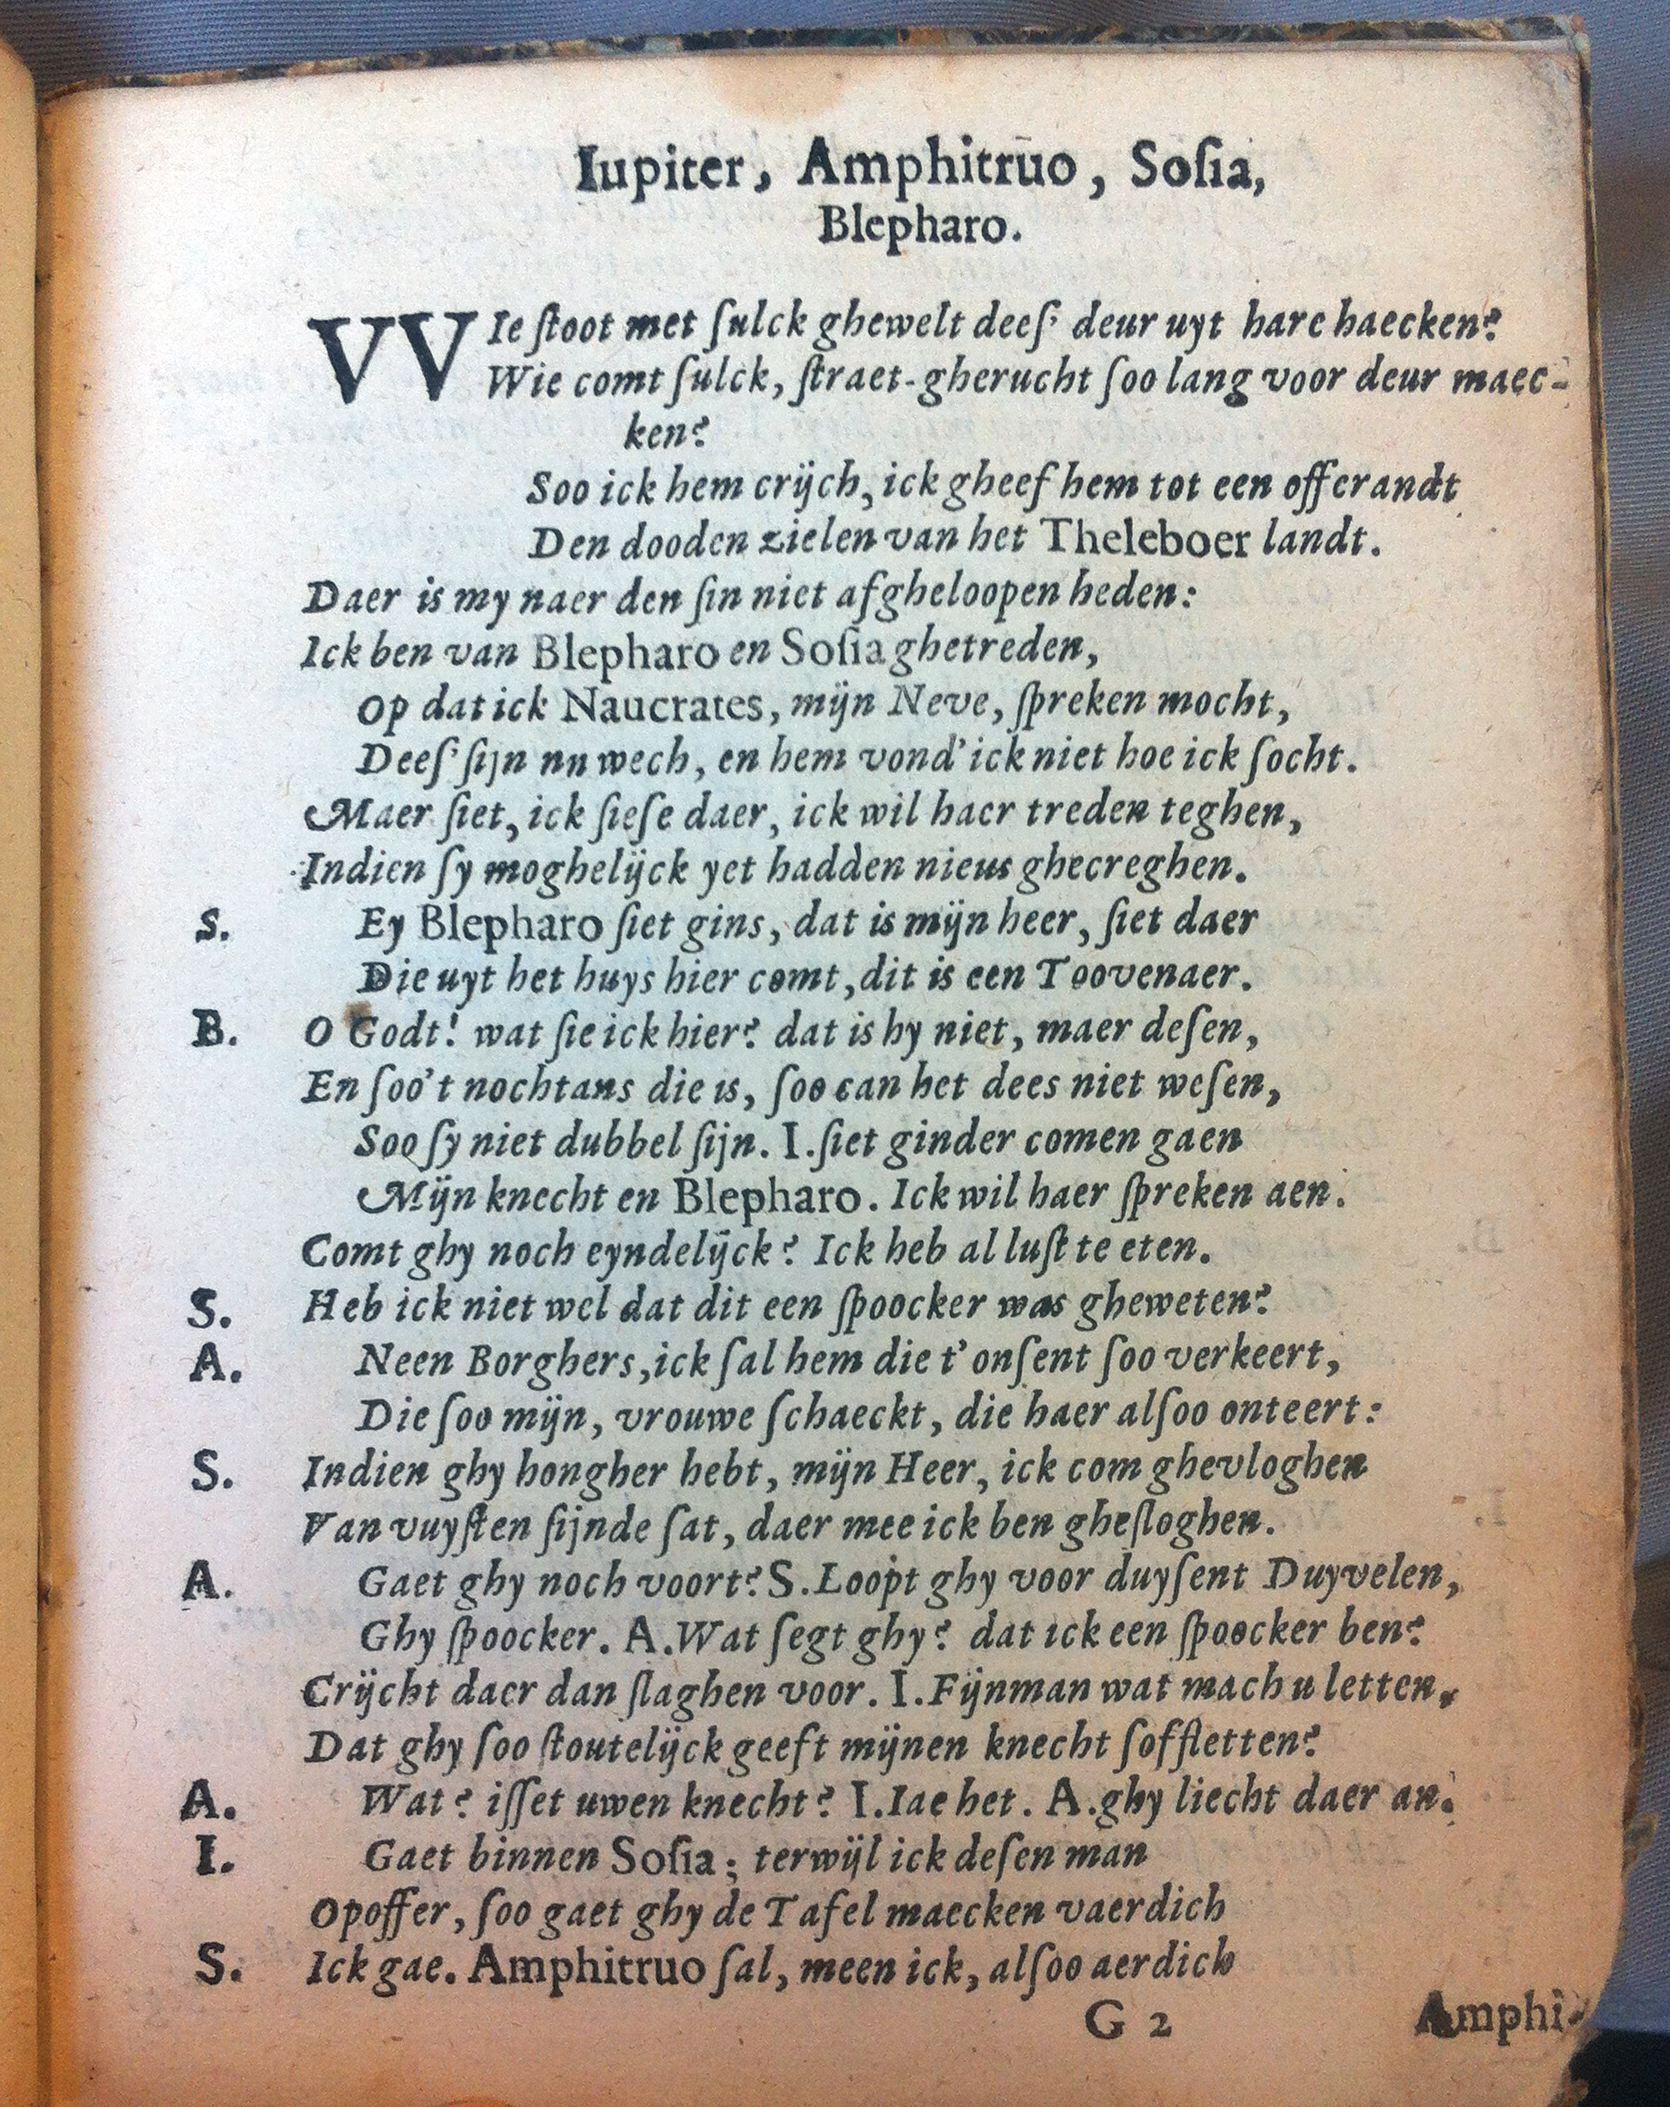 Iupiter, Amphitruo, Soſia,
Blepharo.
VVIe ſtoot met ſulck ghewelt deeſ' deur uyt hare haecken?
Wie comt ſulck, ſtraet-gherucht ſoo lang voor deur maec-
ken?
Soo ick hem crijch, ick gheef hem tot een offerandt
Den dooden zielen van het Theleboer landt.
Daer is my naer den ſin niet afgheloopen heden:
Ick ben van Blepharo en Soſia ghetreden,
Op dat ick Naucrates, mijn Neve, ſpreken mocht,
Deeſ' ſijn nu wech, en hem vond' ick niet hoe ick ſocht.
Maer ſiet, ick ſieſe daer, ick wil haer treden teghen,
Indien ſy moghelijck yet hadden nieus ghecreghen.
S. Ey Blepharo ſiet gins, dat is mijn heer, ſiet daer
Die uyt het huys hier comt, dit is een Toovenaer.
B. O Godt! wat ſie ick hier? dat is hy niet, maer deſen,
En ſoo't nochtans die is, ſoo can het dees niet weſen,
Soo ſy niet dubbel ſijn. I. ſiet ginder comen gaen
Mijn knecht en Blepharo. Ick wil haer ſpreken aen.
Comt ghy noch eyndelijck? Ick heb al luſt te eten.
S. Heb ick niet wel dat dit een ſpoocker was gheweten?
A. Neen Borghers, ick ſal hem die t'onſent ſoo verkeert,
Die ſoo mijn, vrouwe ſchaeckt, die haer alſoo onteert:
S. Indien ghy hongher hebt, mijn Heer, ick com ghevloghen
Van vuyſten ſijnde ſat, daer mee ick ben gheſloghen.
A. Gaet ghy noch voort? S. Loopt ghy voor duyſent Duyvelen,
Ghy ſpoocker. A. Wat ſegt ghy? dat ick een ſpoocker ben?
Crijcht daer dan ſlaghen voor. I. Fijnman wat mach u letten,
Dat ghy ſoo ſtoutelijck geeft mijnen knecht ſoffletten?
A. Wat? iſſet uwen knecht? I. Iae het. A. ghy liecht daer an.
I. Gaet binnen Soſia; terwijl ick deſen man
Opoffer, ſoo gaet ghy de Tafel maecken vaerdich
S. Ick gae. Amphitruo ſal, meen ick, alſoo aerdich
G 2 Amphi-